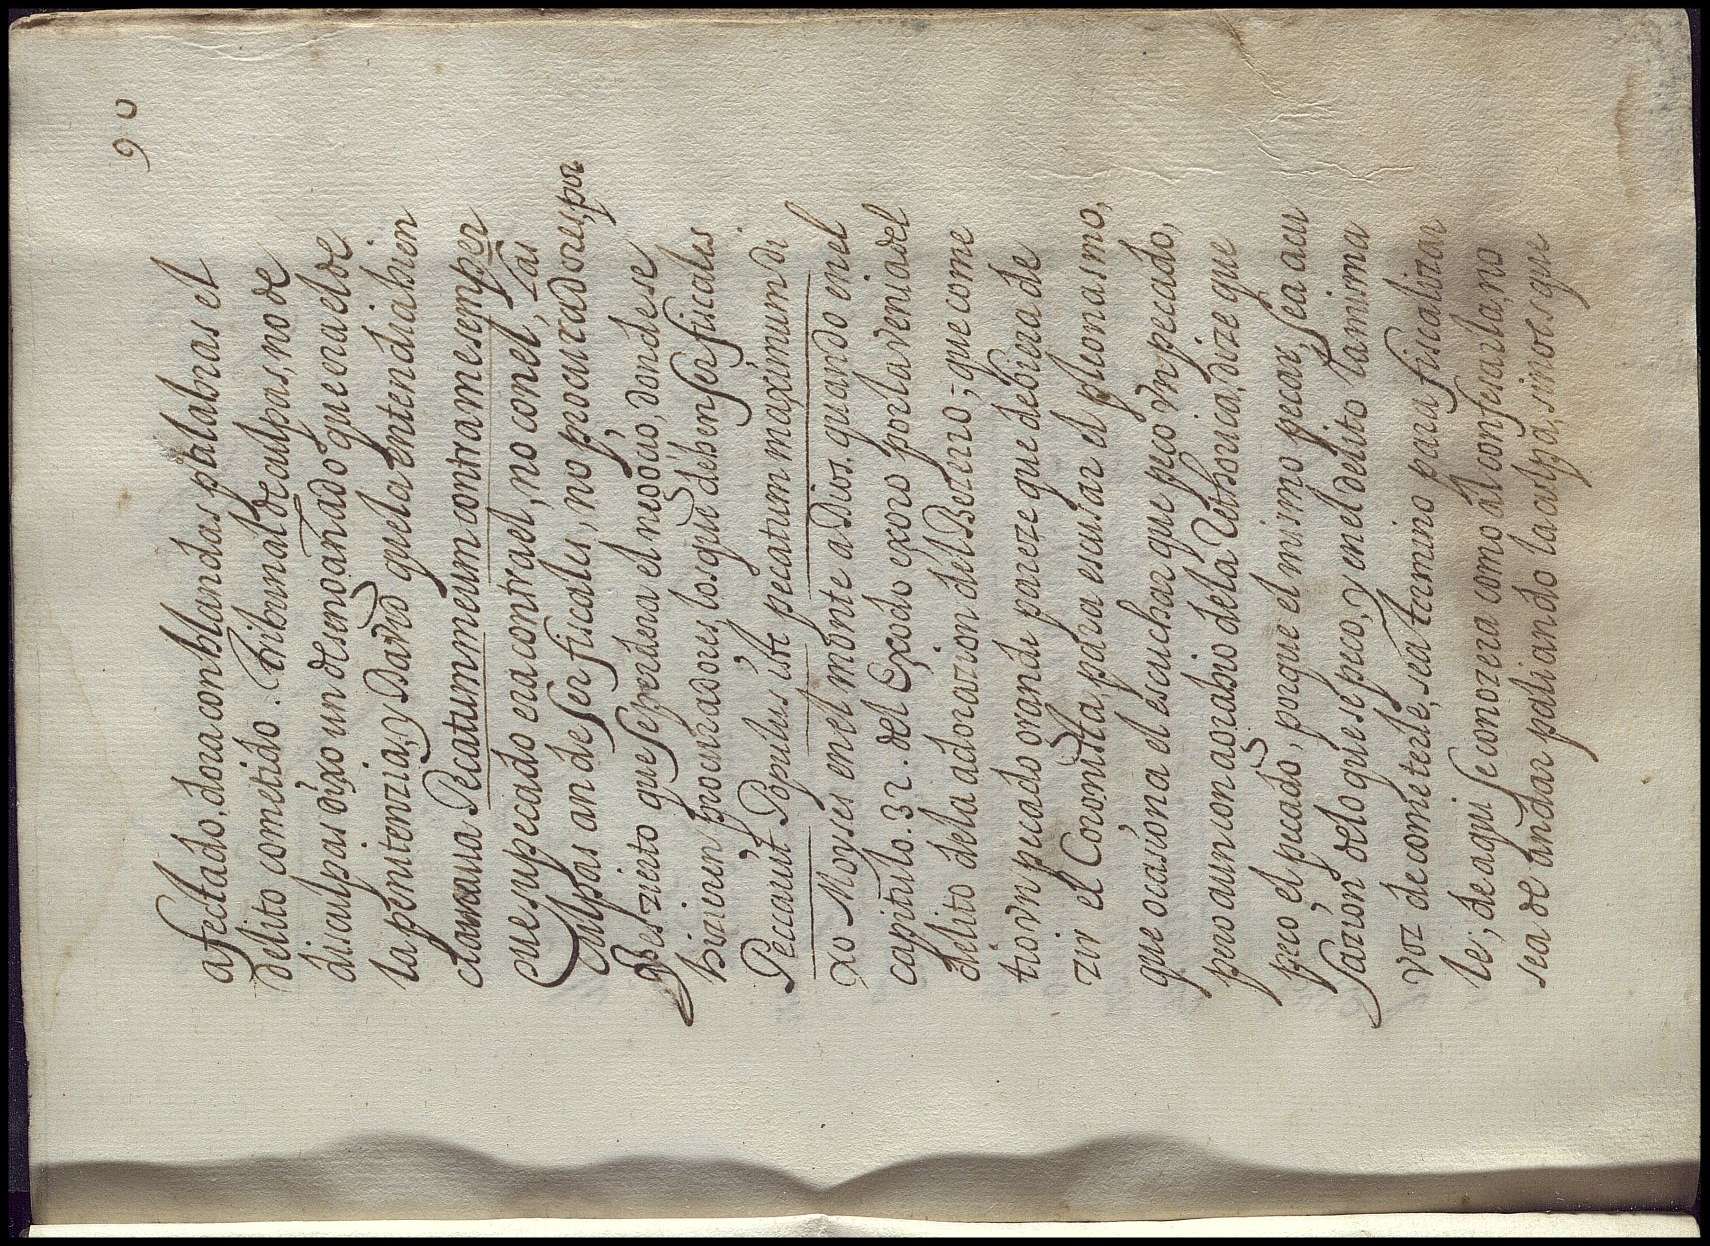 90
afectado, dora con blandas palabras el
delito cometido. Tribunal de culpas, no de
disculpas dixo un desengañado que era el de
la penitenzia, y David que la entendia bien
clamaua Pecatum meum contra me semper
que su pecado era contra el, no con el, Las
Culpas an de ser fiscales, no procuradores, por
que se perdera el negocio, donde se
hizieren procuradores, los que deben ser fiscales.
Peccauit Populus iste pecatum maximum di
xo Moyses en el monte a Dios. quando en el
capitulo. 32. del Exodo exoro por la venia del
delito de la adorazion del Bezerro, que come
tio vn pecado grande pareze que debiera de
zir el Coronista, para escusar el pleonasmo,
que ocasiona el escuchar que peco vn pecado,
pero aun con agrabio de la Rethorica, dize que
peco el pecado, porque el mismo pecar, sea acu
sazion de lo que se peco, y en el delito la misma
voz de cometerle, sea termino para fiscalizar
le; de aqui se conozera como al confesarla, no
sea de andar paliando la culpa, sino es que